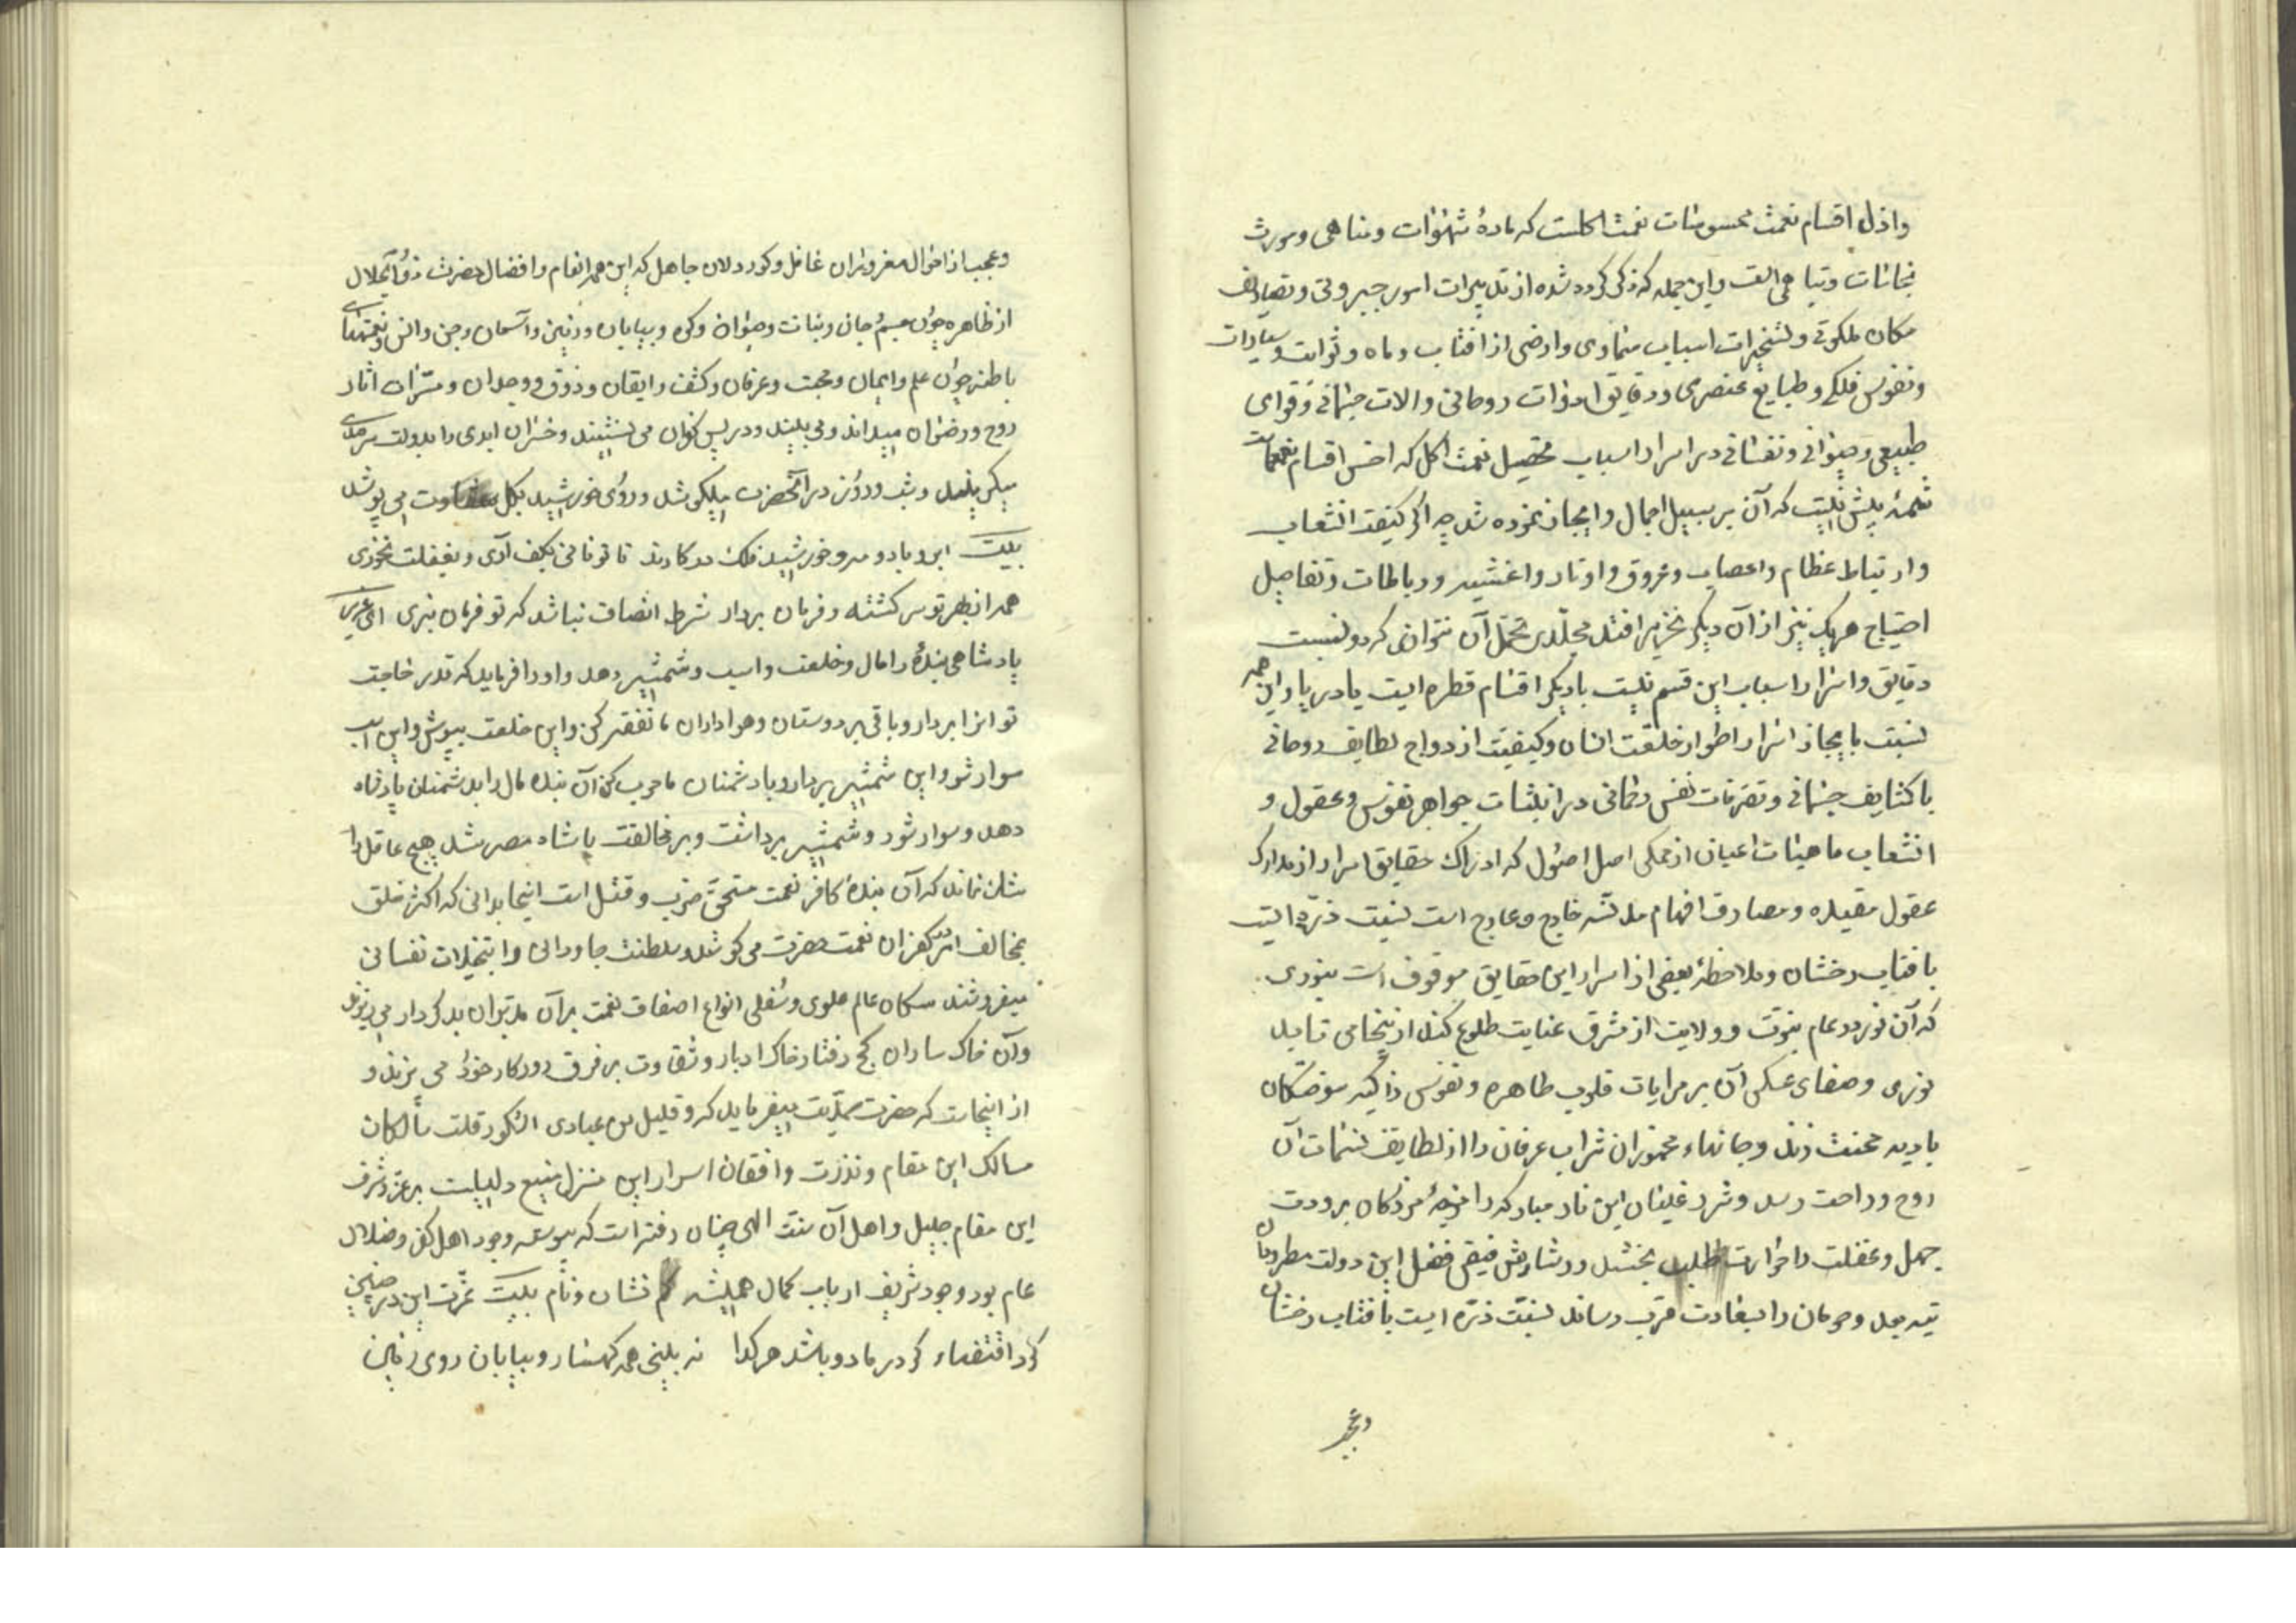 واذل اقسام نعمت محسوسات نعمت اکلست که مادهٔ شهوات و مناهی و مورث
نجاسات و تباهی الت و این جمله که ذکر کرده شده از تدبیرات امور جبروتی و تصاریف
مکان ملکوتی و تسخیرات اسباب سماوی و ارضی از افتاب و ماه و ثوابت و سیارات
و نفوس فلکی و طبایع عنصری و دقایق ادوات روحانی و الات جسمانی و قوای
طبیعی و حیوانی و نفسانی در اسرار اسباب تحصیل نعمت اکل که اخس اقسام نعمهاست
شمهٔ بیش نیست که آن بر سبیل اجمال و ایجاز نموده شد چه اگر کیفیت انشعاب
و ارتباط عظام و اعصاب و عروق و اوتار و اغشیه و رباطات و تفاصیل
احتیاج هریک نیز از آن دیگر بتحریر افتد مجلدی تحمل آن نتوان کرد و نسبت
دقایق و اسرار اسباب این قسم نسبت با دیگر اقسام قطره ایست یا دریا و این همه
نسبت با ایجاز اسرار اطوار خلقت انسان و کیفیت ازدواج لطایف روحانی
با کثایف جسمانی و تصرفات نفس رحمانی در انبثاث جواهر نفوس و عقول و
انشعاب ماهیات اعیان از ممکن اصل اصول که ادراک حقایق اسرار از مدارک
عقول مقیده و مصارف افهام مدنسه خارج و عارج است نسبت ذره ایست
با فتاب رخشان و ملاحظهٔ بعضی از اسرار این حقایق موقوف است بنوری
که آن نور در عام نبوت و ولایت از مشرق عنایت طلوع کند از تنخامی تا بد
نوری و صفای عکس آن بر مرایات قلوب طاهره و نفوس ذاکیه سوختگان
بادیه محنت زند و جانهاء مخموران شراب عرفان را از لطایف نسمات آن
روح و راحت رسد و شرر غلیان این نار مبارکه افزوجهٔ مردکان برودت
جهل و غفلت را حرارت طلب بخشد و رشاش فیض فضل این دولت مطرودان
تیه بعد و حرمان را بسعادت قرب رساند نسبت ذره ایست با فتاب رخشان
و عجب
و عجب از احوال مغروران غافل و کوردلان جاهل که این همه انعام و افضال حضرت ذوالجلال
از ظاهره چون جسم و جان و نبات و حیوان و کوه و بیابان و زمین و آسمان و جن و انس و نعمتهای
باطنه چون علم و ایمان و محبت و عرفان و کشف و ایقان و ذوق و وجدان و مسران اثار
روح و رضوان میداند و می بیند و در پس کفران می نشیند و خسران ابدی را بدولت سرمدی
میگزیند و شب و روز در آنحضرت میکوشد و روی خورشید بکل شقاوت می پوشد
بیت ابر و باد و مه و خورشید فلک در کارند تا تو نانی بکف آری و بغفلت نخوری
همه از بهر تو سرگشته و فرمان بردار شرط انصاف نباشد که تو فرمان نبری ای عزیز
پادشاهی بندهٔ را مال و خلعت و اسب و شمشیر دهد و او را فرماید که قدر حاجت
تو ازا بردار و باقی بر دوستان و هواداران ما تفقد کن و این خلعت بپوش و این اسب
سوار شو و این شمشیر بردار و با دشمنان ما حرب کن آن بنده مال را بدشمنان پادشاه
دهد و سوار شود و شمشیر برداشت و بر مخالفت پادشاه مصر شد هیچ عاقل را
شک نماند که آن بندهٔ کافر نعمت مستحق ضرب و قتل است اینجا بدانی که اکثر خلق
بمخالفت امر و کفران نعمت حضرت می کوشند و سلطنت جاودانی را بتخیلات نفسانی
میفروشند سکان عالم علوی و سفلی انواع اصناف نعمت بر آن مدبران بد کردار میریزند
و آن خاکساران کج رفتار خاک ادبار و شقاوت بر فرق روزکار خود می بیزند و
از اینجاست که حضرت صمدیت میفرماید که و قلیل من عبادی الشکور قلت سالکان
مسالک این مقام و ندرت واقفان اسرار این منزل منیع دلیلیست بر عز و شرف
این مقام جلیل و اهل آن سنت الهی چنان رفتست که پیوسته وجود اهل کفر و ضلال
عام بود و وجود شریف ارباب کمال همیشه کم نشان و نام بیت عزت این در چنین
کرد اقتضاء کز در ما دور باشد هر گدا نه بینی همه کهسار و بیابان روی زمین